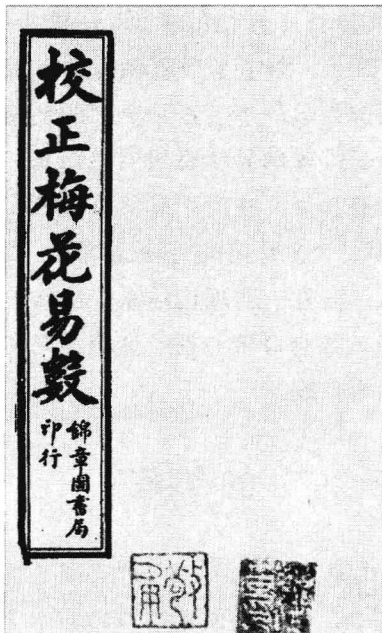 校正梅花易數
錦章圖書局
印行